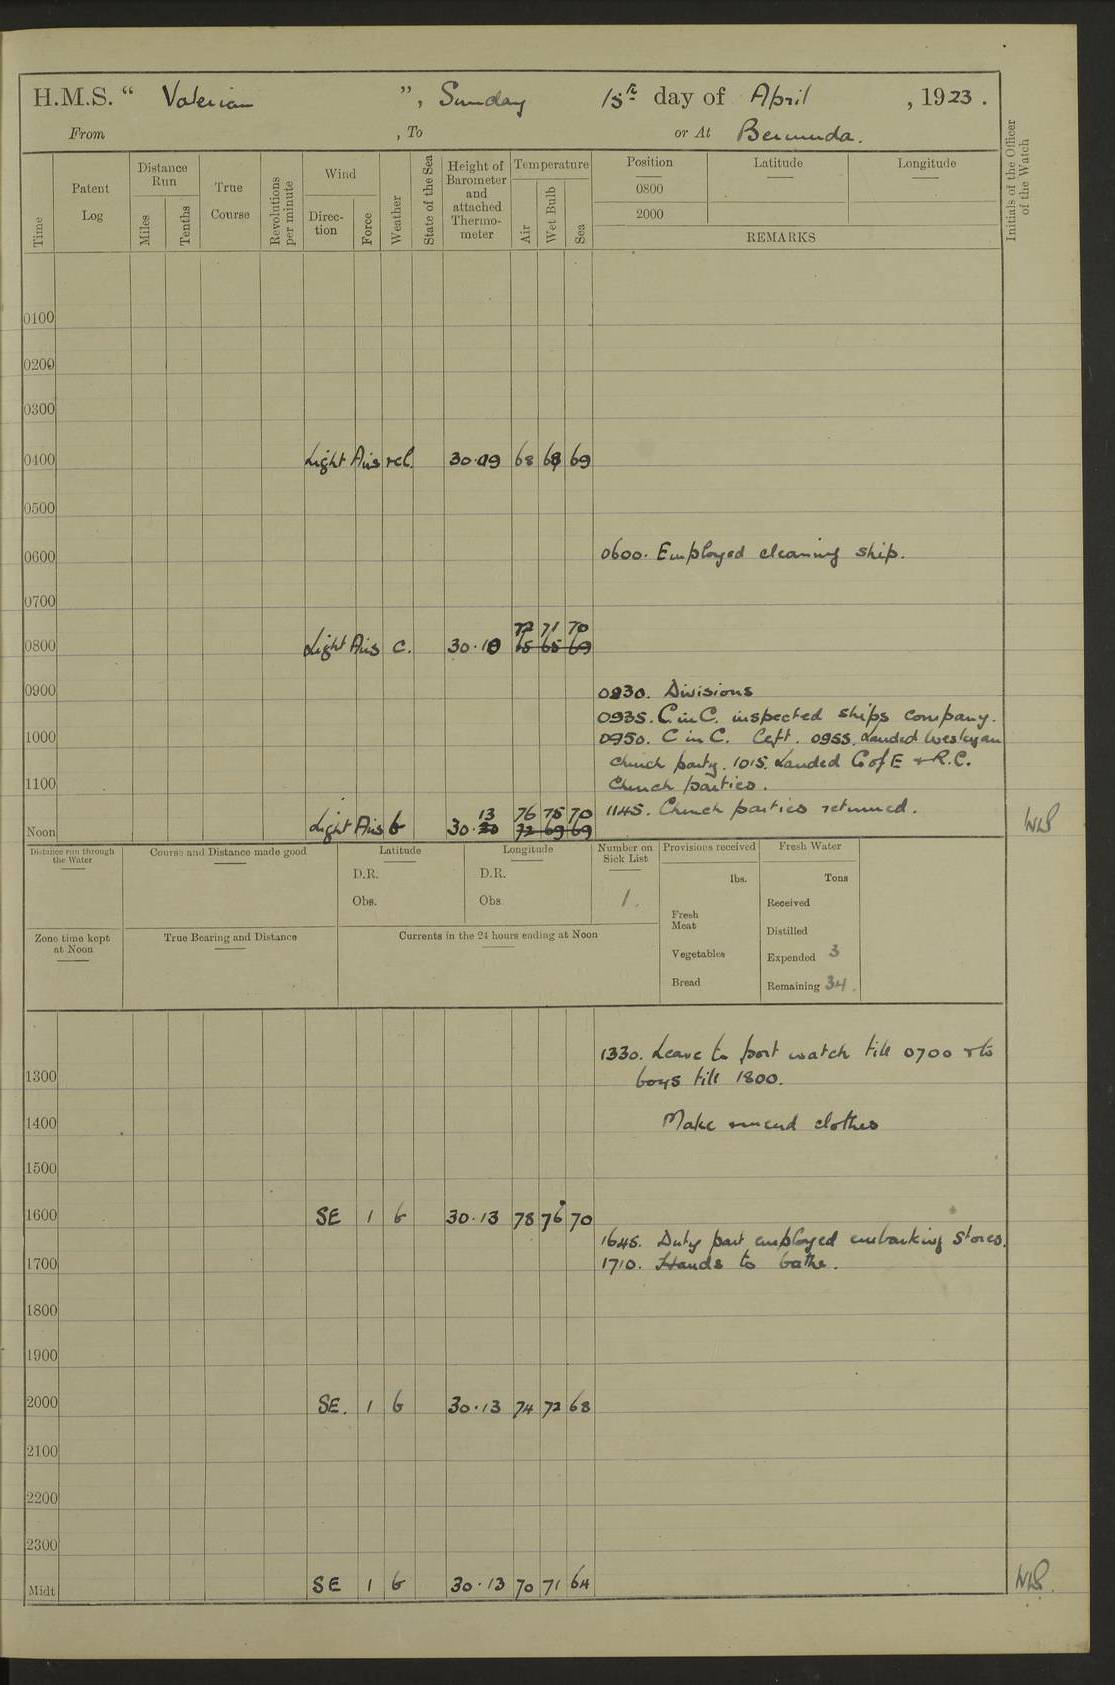 H.M.S. “ Valerian ”, Sunday 15th day of April , 1923 .
From , To or At Bermuda.
Time
Patent Log
Distance Run
Miles
Tenths
True Course
Revolutions per minute
Wind
Direc- tion
Force
Weather
State of the Sea
Height of Barometer and attached Thermo- meter
Temperature
Air
Wet Bulb
Sea
Position Latitude Longitude
0800
2000
REMARKS
Initials of the Officer of the Watch
0100
0200
0300
0400 Light Airs rcl. 30.09 68 68 69
0500
0600 0600. Employed cleaning ship.
0700
72 71 70
0800 Light Airs c. 30.10 65 65 69
0900 0930. Divisions
0935. C in C. inspected ships company.
1000 0950. C in C. left. 0955. Landed Wesleyan
church party. 1015. Landed C of E + R.C.
1100 Church parties.
13 76 75 70 1145. Church parties returned.
Noon Light Airs b 30.20 72 69 69
Distance run through the Water
Course and Distance made good
Latitude
D.R.
Obs.
Longitude
D.R.
Obs
Number on Sick List
1.
Provisions received
lbs.
Fresh Meat
Vegetables
Bread
Fresh Water
Tons
Received
Distilled
Expended 3
Remaining 34.
Zone time kept at Noon
True Bearing and Distance
Currents in the 24 hours ending at Noon
1330. Leave to port watch till 0700 + to
1300 boys till 1800.
1400 Make mend clothes
1500
1600 SE 1 b 30.13 78 76 70
1645. Duty part employed embarking stores.
1700 1710. Hands to bathe.
1800
1900
2000 SE. 1 b 30.13 74 72 68
2100
2200
2300
Midt SE 1 b 30.13 70 71 64